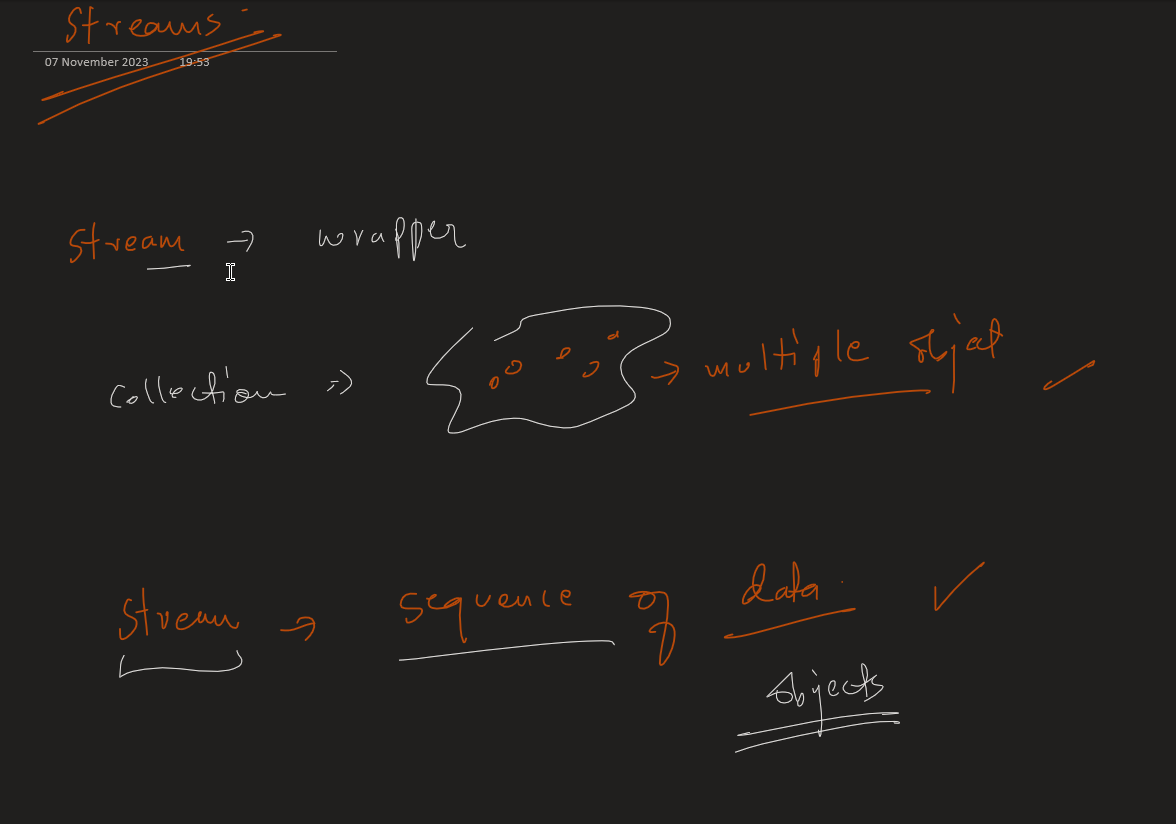 Streams
07 November 2023 19:53
Stream → wrapper
Collection => → multiple object
Stream → sequence of data
Objects